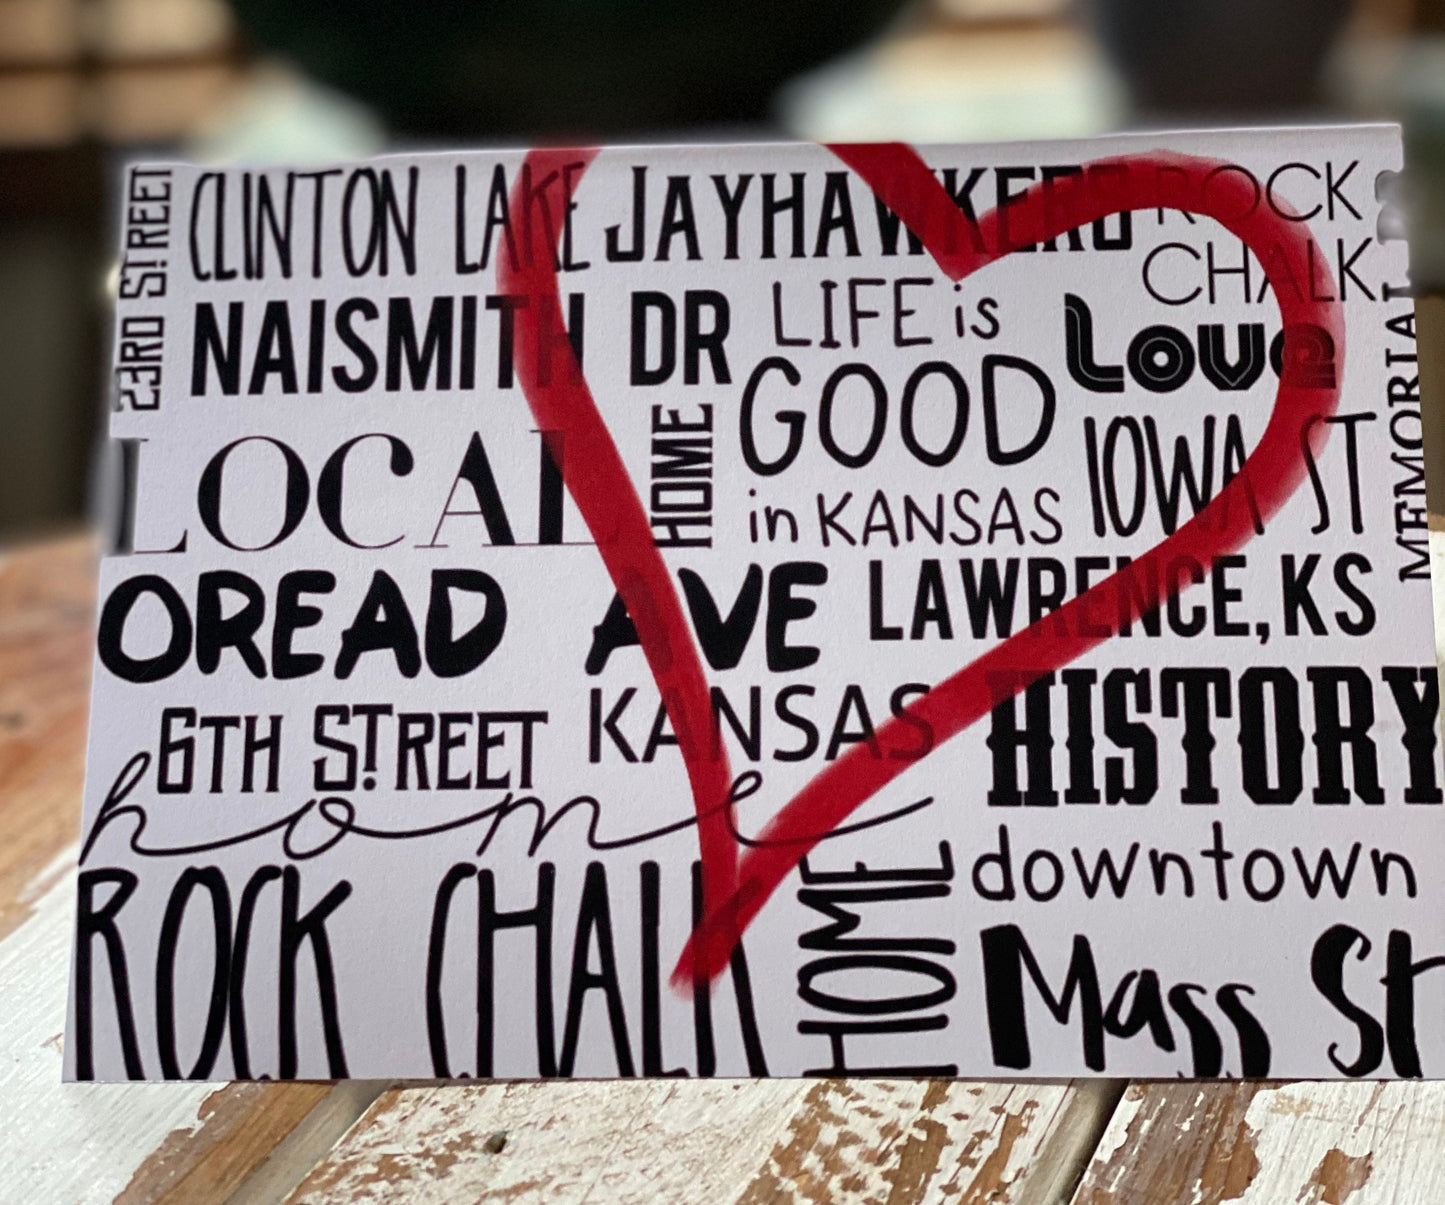 23RD STREET
CLINTON LAKE
JAYHAWKERS
ROCK
CHALK
NAISMITH DR
LIFE is
GOOD
in KANSAS
Love
MEMORIAL
LOCAL
HOME
IOWA ST
OREAD AVE
LAWRENCE, KS
6TH STREET
KANSAS
HISTORY
home
downtown
ROCK CHALK
HOME
Mass St